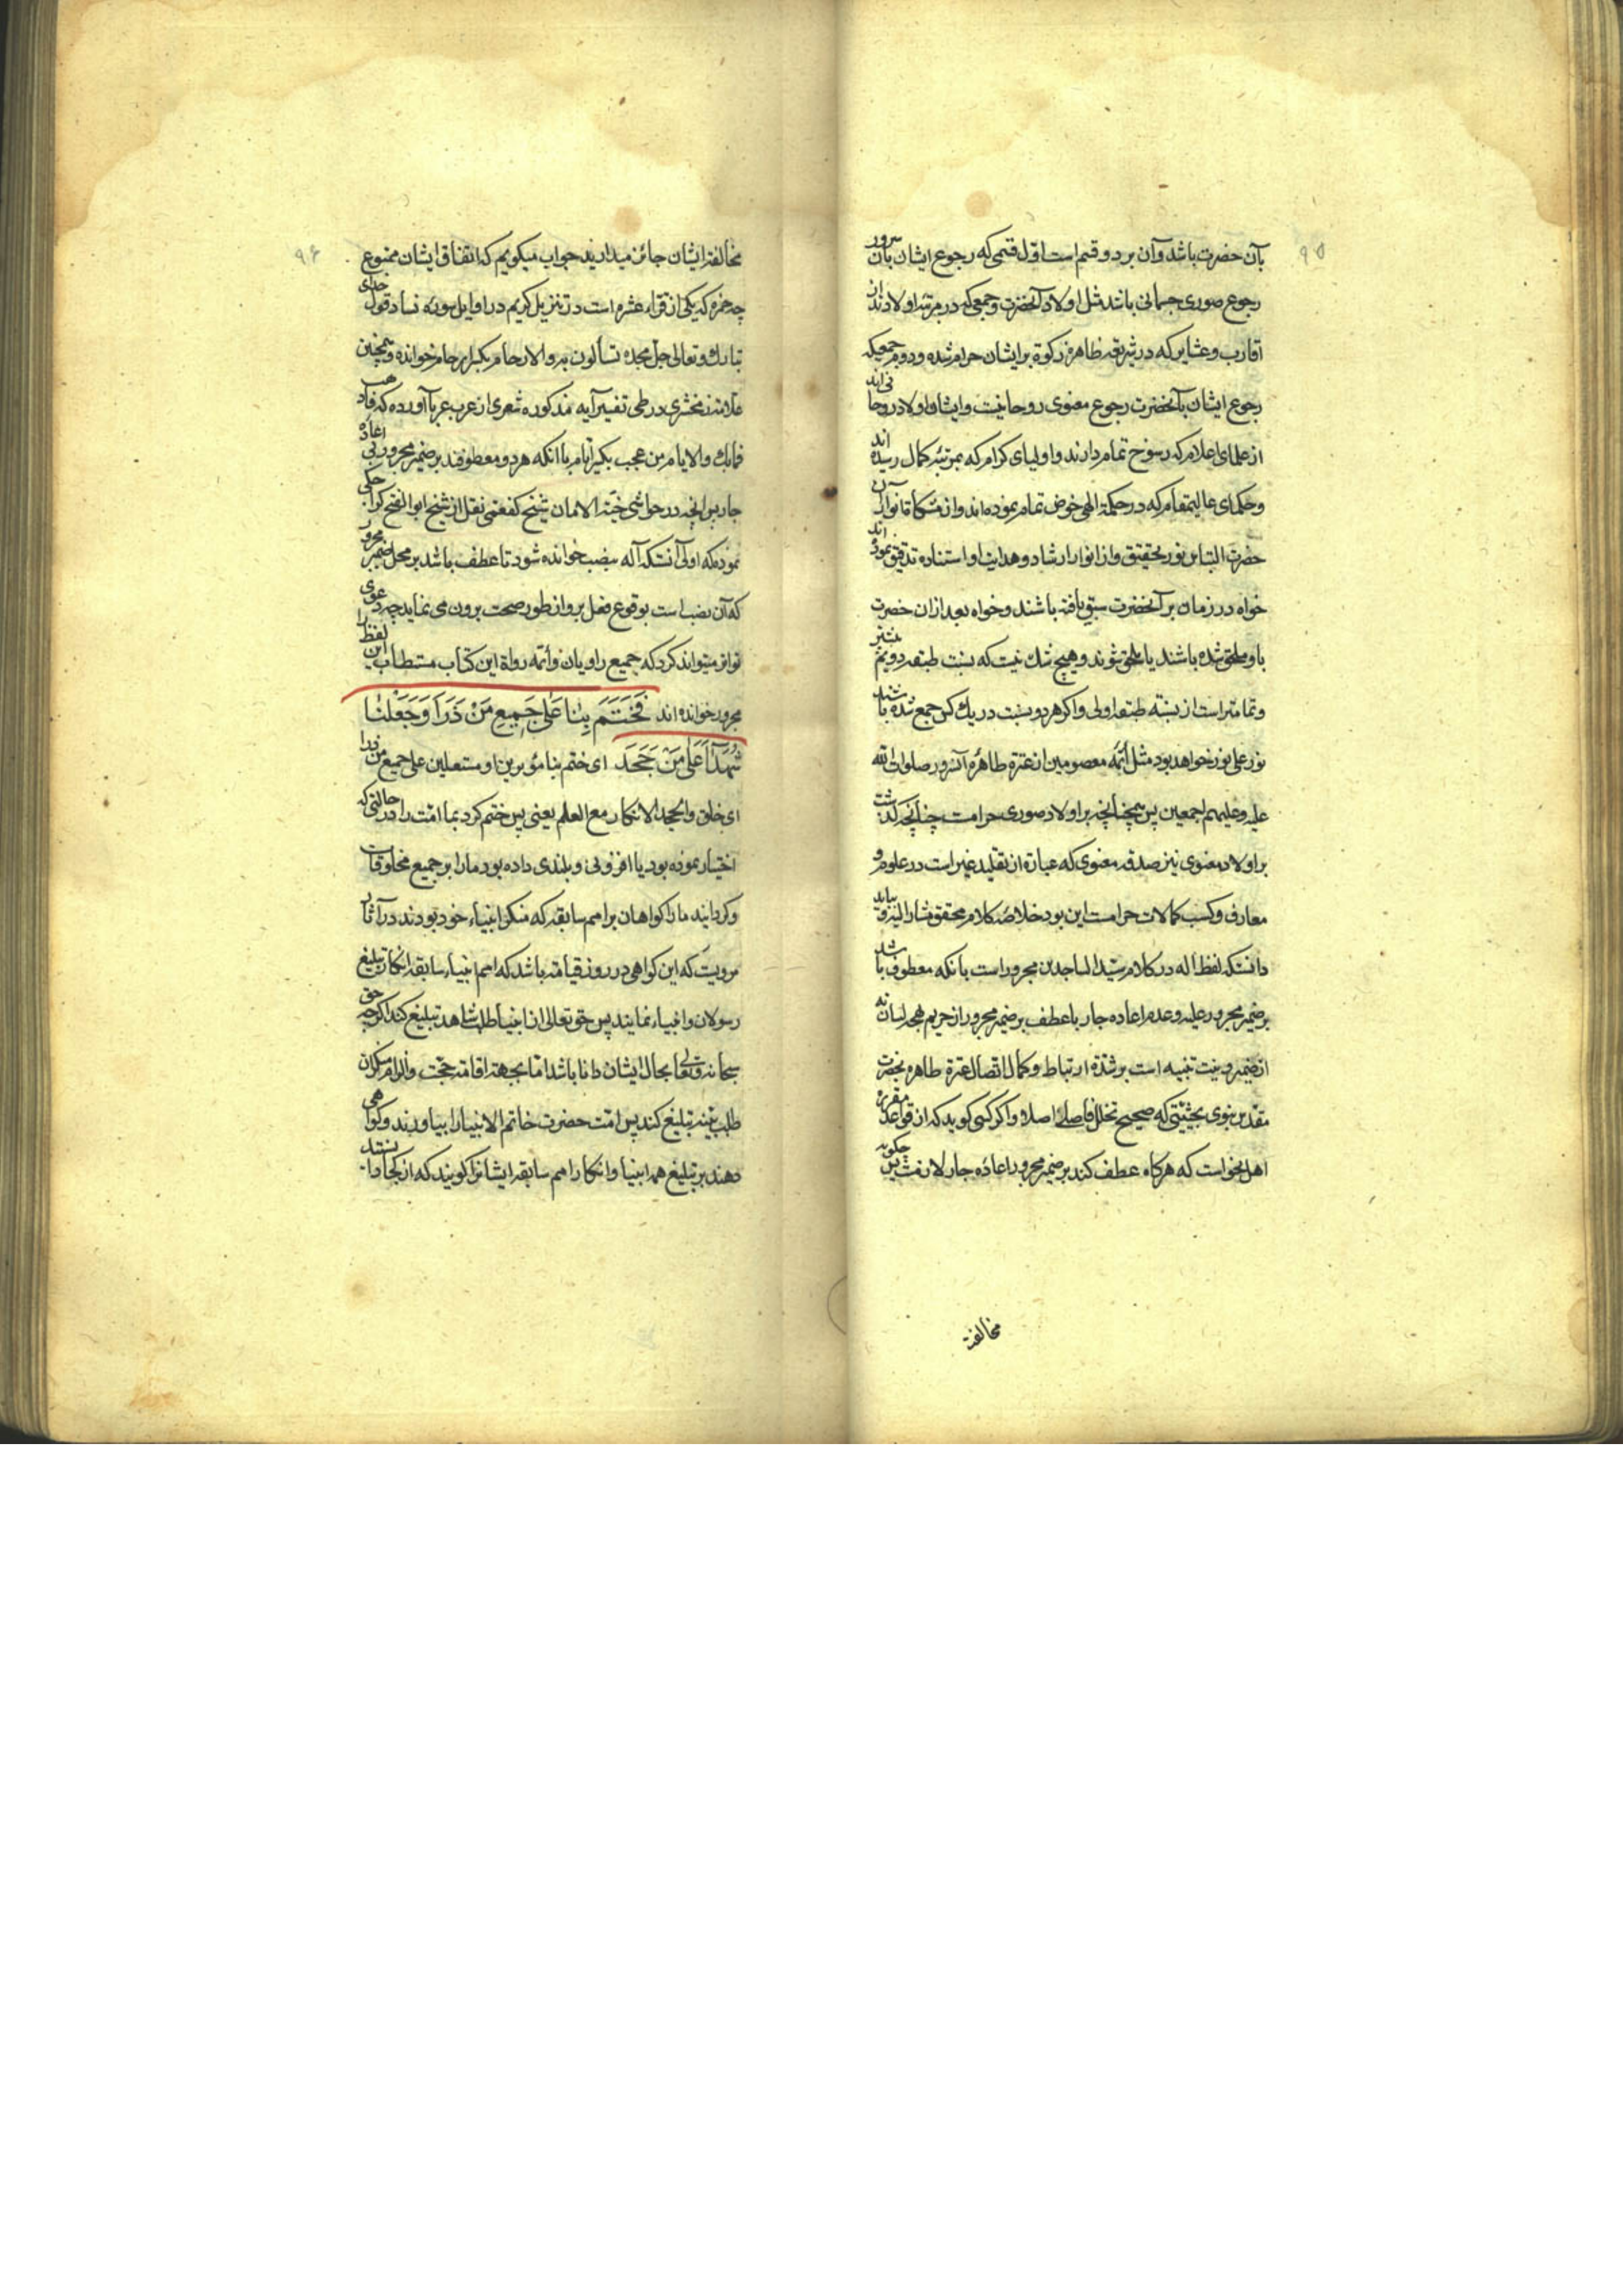 ۹۵
بآن حضرت باشد وآن بر دو قسم است اول قسمی که رجوع ایشان بآن سرور
رجوع صوری جسمانی باشد مثل اولاد آنحضرت و جمعی که در مرتبه اولادند از
اقارب و عشایر که در شریعه ظاهره زکوة بر ایشان حرام شده و دوم جمعیکه
رجوع ایشان بآنحضرت رجوع معنوی روحانیت و ایشان اولاد روحانی اند
از علمای اعلام که رسوخ تمام دارند و اولیای کرام که بمرتبه کمال رسیده اند
و حکمای عالیمقام که در حکمة الهی خوض تمام نموده اند و از مشکاة انوار آن
حضرت اقتباس نور تحقیق و از انوار ارشاد و هدایت او استفاده تدقیق نموده اند
خواه در زمان بر آنحضرت سبق یافته باشند و خواه بعد از ان حضرت
باو ملحق شده باشند یا ملحق شوند و هیچ شک نیست که نسبت طبقه دویم بیشتر
و تمامتر است از نسبة طبقه اولی و اگر هر دو نسبت در یک کس جمع شده باشد
نور علی نور خواهد بود مثل أئمه معصومین از عترة طاهره آنسرور صلوات الله
علیه وعلیهم اجمعین پس همچنانچه بر اولاد صوری حرامست چنانچه گذشت
بر اولاد معنوی نیز صدقه معنوی که عبارة از تقلید غیر است در علوم و
معارف و کسب کمالات حرامست این بود خلاصه کلام محقق مشار الیه و بباید
دانست که لفظ اله در کلام سید الساجدین مجرور است بانکه معطوف باشد
بر ضمیر مجرور علیه وعدم اعاده جار با عطف بر ضمیر مجرور از حریم لهجه لسانه
از ضمیر و نیت تنبیه است بر شدة ارتباط و کمال اتصال عترة طاهره بحضرت
مقدس نبوی بحیثیتی که صحیح تخلل فاصله اصلا و اگر کسی گوید که از قواعد مقرره
اهل نحو است که هر گاه عطف کند بر ضمیر مجرور اعاده جار لازمست پس چگونه
مخالفة
۹۶
مخالفة ایشان جائز میدارید جواب میگویم که اتفاق ایشان ممنوع
چه حمزه که یکی از قراء عشره است در تنزیل کریم در اوایل سوره نسا در قول خدای
تبارک و تعالی جل مجده تسألون به والارحام بکسر ارحام خوانده و همچنین
علامه زمخشری در طی تفسیر آیه مذکوره شعری از عرب عربا آورده که فاذهب
فمابک والایام من عجب بکسر ایام با آنکه هر دو معطوفند بر ضمیر مجرور بی اعاده
جار پس آنچه در حواشی جنة الامان شیخ کفعمی نقل از شیخ ابو الفتح کراجکی
نموده که اولی آنست که آله بنصب خوانده شود تا عطف باشد بر محل ضمیر مجرور
که آن نصب است بوقوع فعل برو از طور صحت برون می نماید چه دعوی
تواتر میتواند کرد که جمیع راویان و أئمه رواة این کتاب مستطاب این لفظ را
مجرور خوانده اند فَخَتَمَ بِنٰا عَلیٰ جَمِیعِ مَنْ ذَرَأَ وَجَعَلَنٰا
شُهَدٰٓاءَ عَلیٰ مَنْ جَحَدَ ای ختم بنا مؤثرین او مستعلین علی جمیع من ذرا
ای خلق والجحد الانکار مع العلم یعنی پس ختم کرد بما امت را در حالتی که
اختیار نموده بود یا افزونی و بلندی داده بود ما را بر جمیع مخلوقات
و گردانید ما را گواهان بر امم سابقه که منکر انبیاء خود بودند در آثار
مرویست که این گواهی در روز قیامة باشد که امم انبیاء سابقه انکار تبلیغ
رسولان و انبیاء نمایند پس حق تعالی از انبیا طلب شاهد تبلیغ کند اگرچه حق
سبحانه وتعالی بحال ایشان دانا باشد اما بجهة اقامة حجت و الزام منکران
طلب بینه تبلیغ کند پس امت حضرت خاتم الانبیا را بیاورند و گواهی
دهند بر تبلیغ همه انبیا و انکار امم سابقه ایشانرا گویند که از کجا دانستند